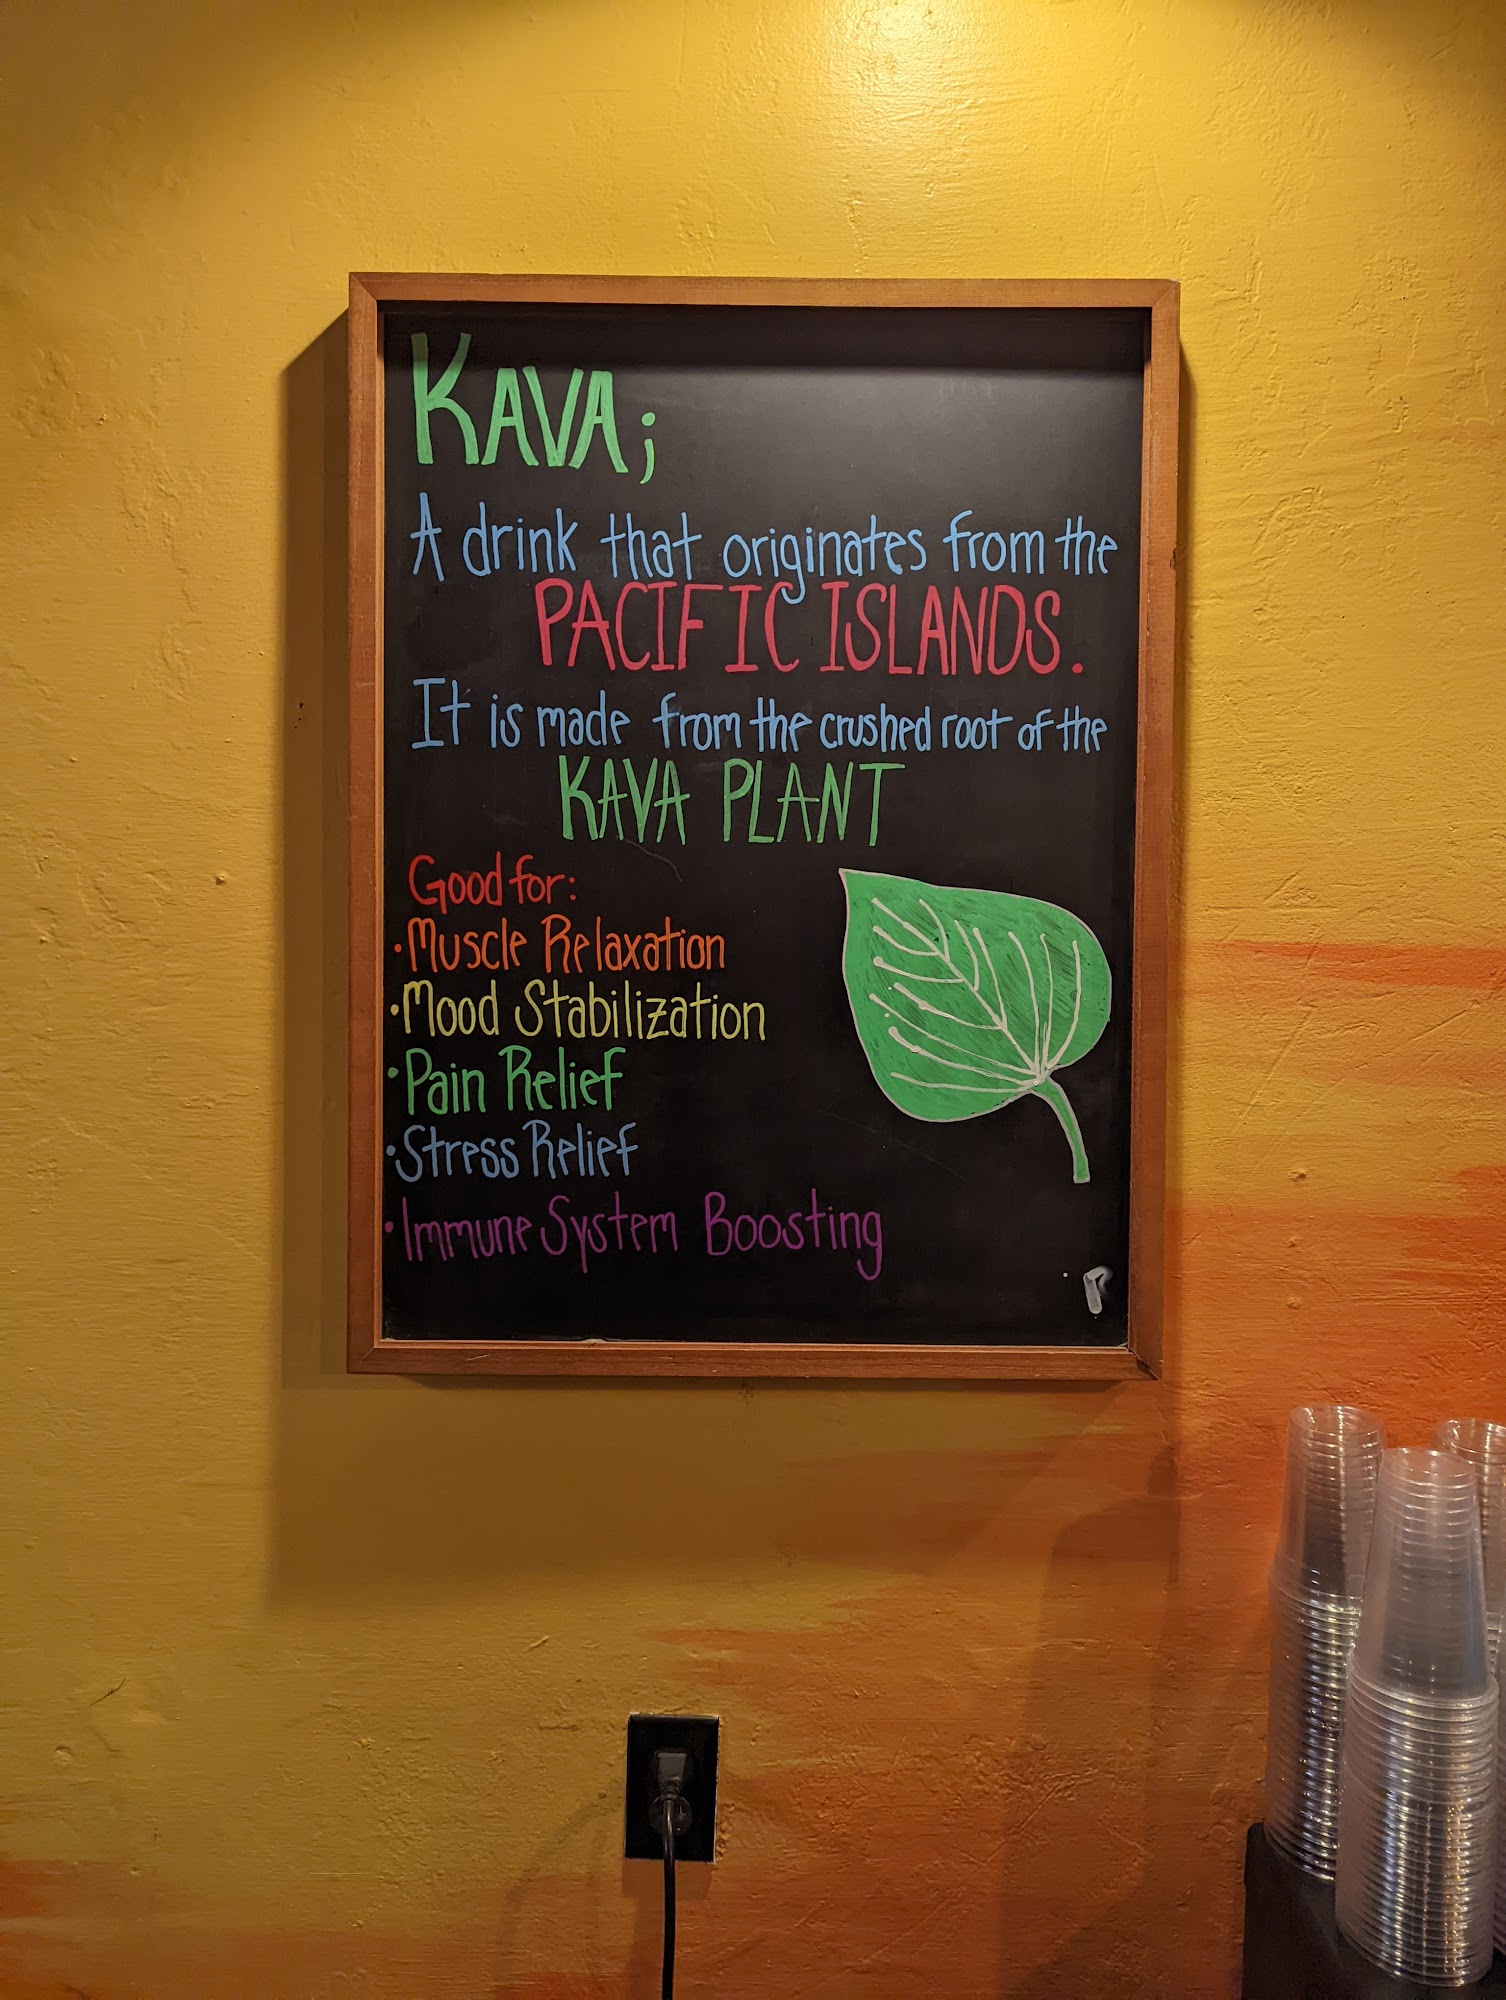 KAVA;
A drink that originates from the
PACIFIC ISLANDS.
It is made from the crushed root of the
KAVA PLANT
Good for:
• Muscle Relaxation
• Mood Stabilization
• Pain Relief
• Stress Relief
• Immune System Boosting